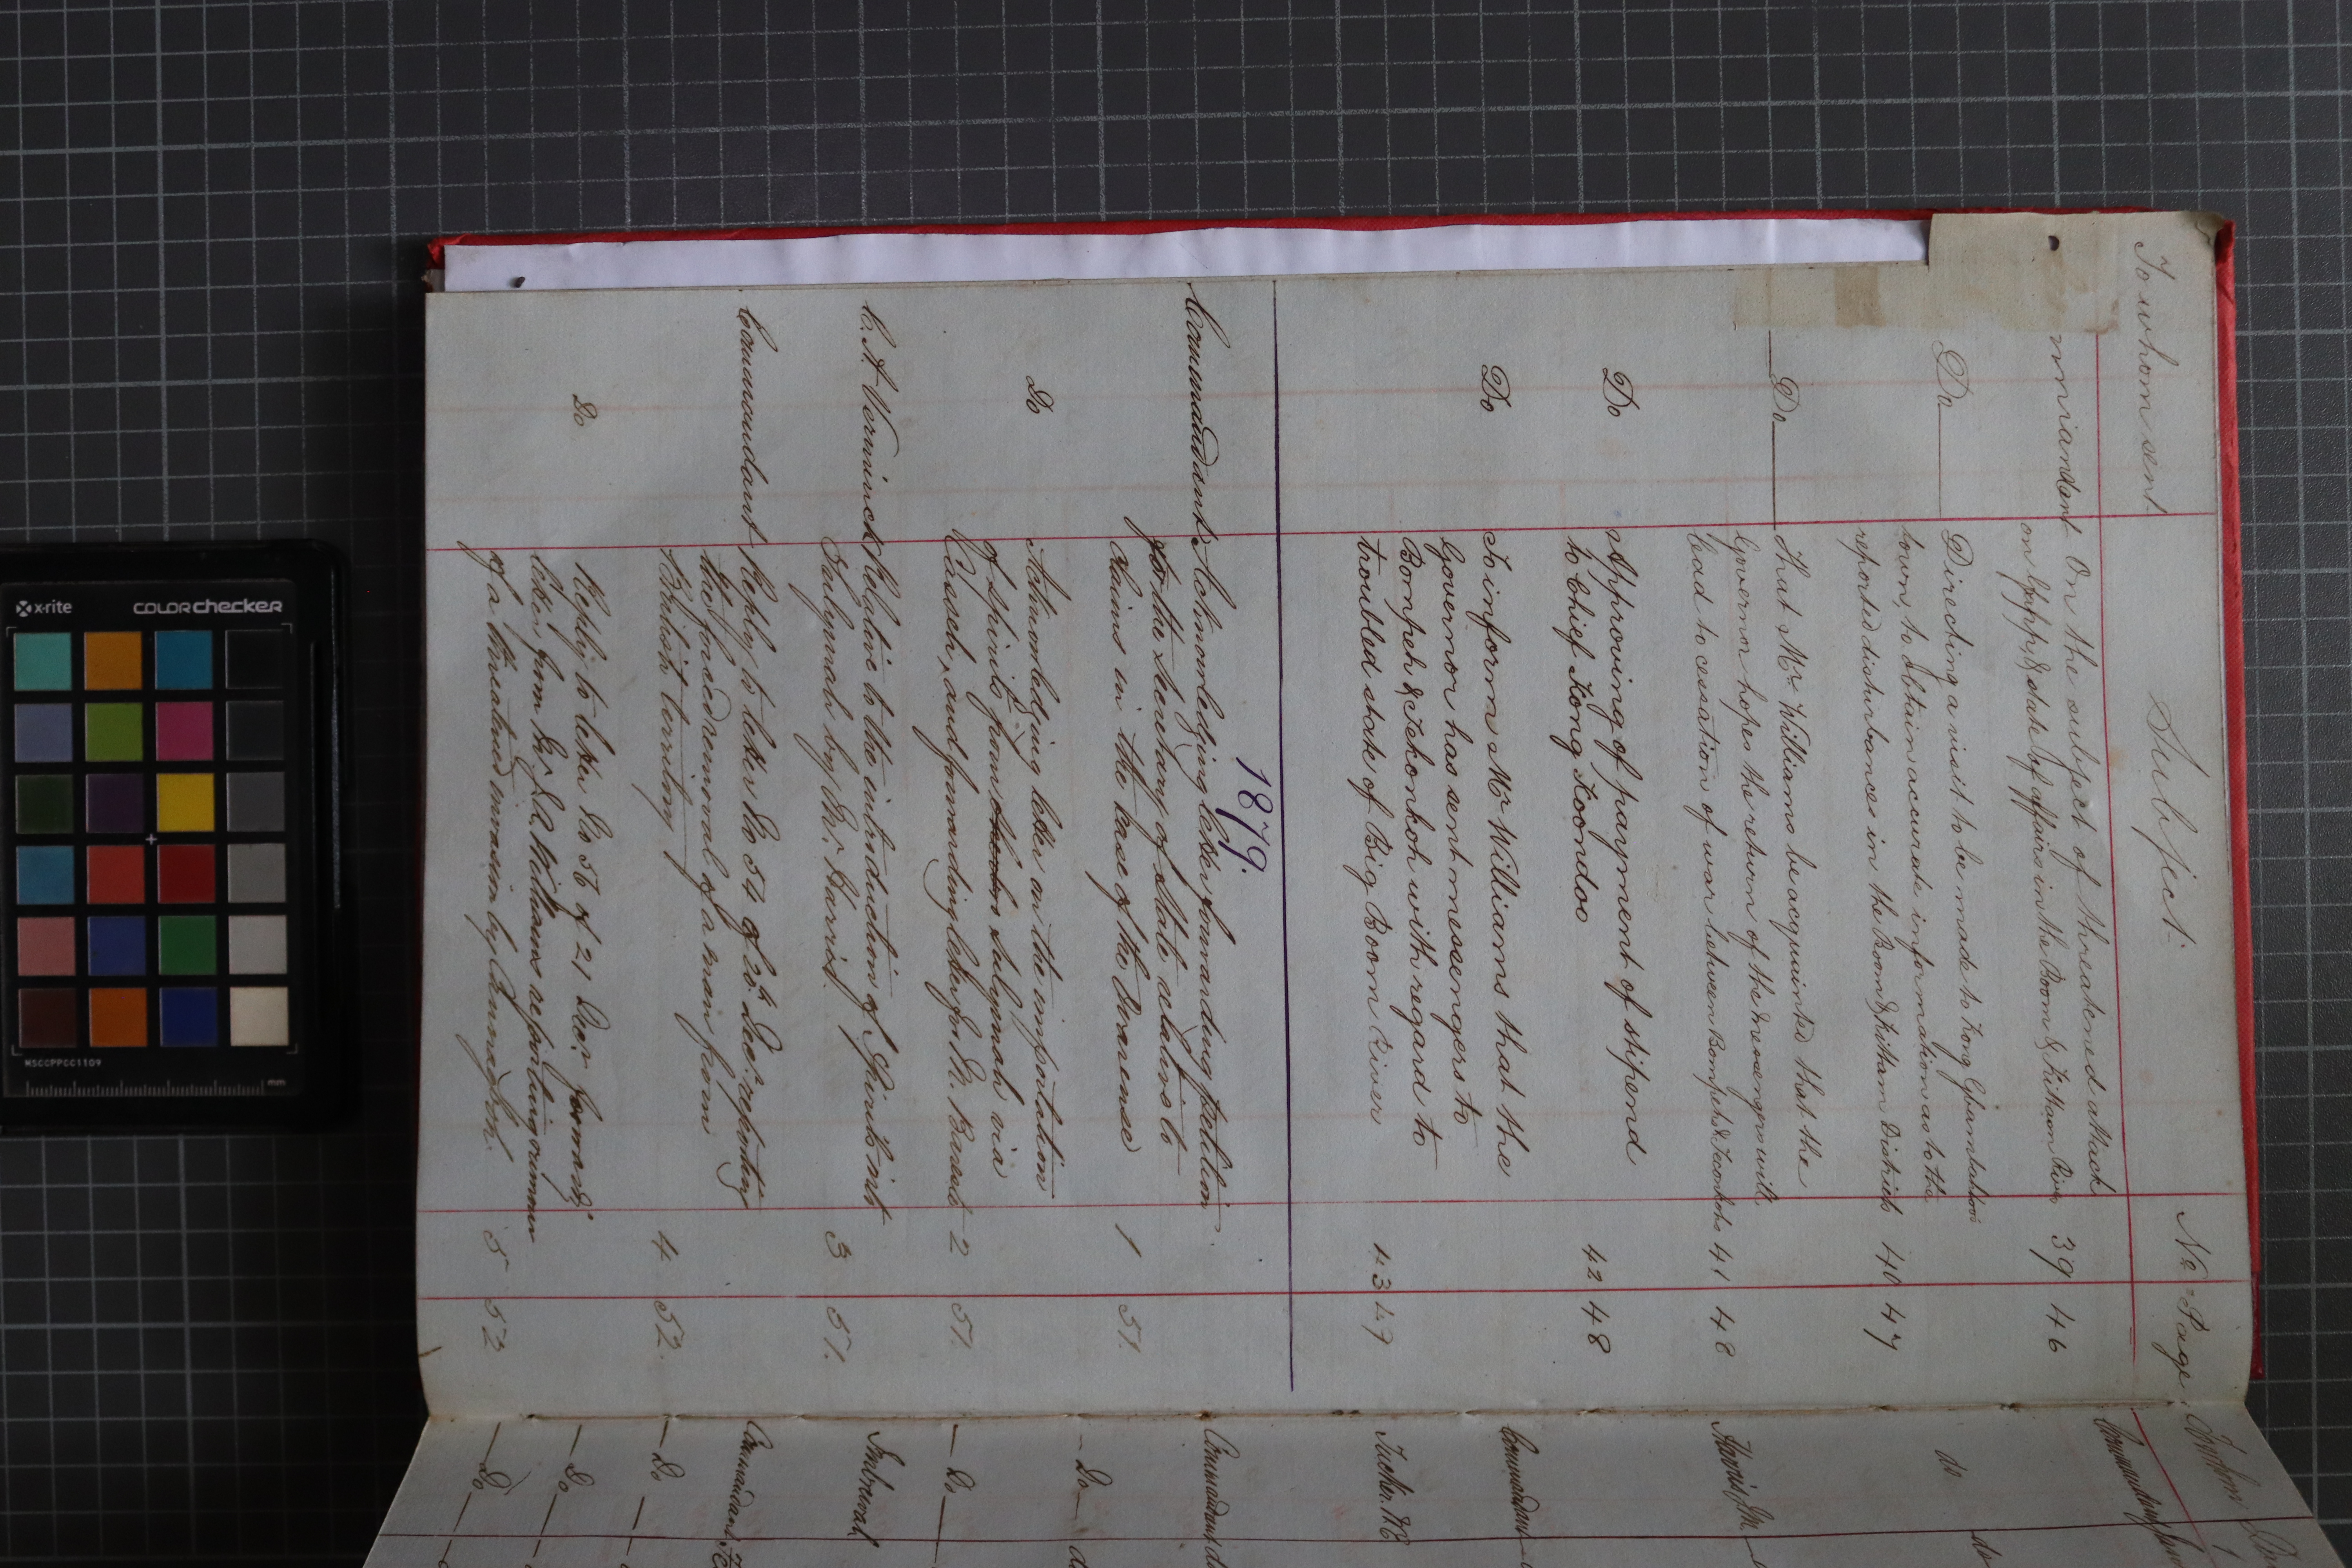 To whom sent. Subject. No. Page.
mmandant On the subject of threatened attack
on Gapph & state of affairs in the Boom & Kittam River 39 46
Do Directing a visit to be made to Kong
town, to obtain accurate information as to the
reported disturbances in the Boom & Kittam Districts 40 47
Do That Mr Williams be acquainted that the
Governor hopes the return of the messengers will
lead to cessation of war between Bompeh & 41 48
Do Approving of payment of stipend
to Chief Kong Koondoo 42 48
Do To inform Mr Williams that the
Governor has sent messengers to
Bompeh & Tekonkoh with regard to
troubled state of Big Boom River 43 49
1879.
Commandant Acknowledging letter forwarding petition
for the Secretary of State relative to
claims in the case of the 1 51.
Do Acknowledging letter on the importation
of spirits from Sulymah via
and forwarding letter for M. 2 51
C. A. Verminck Relative to the introduction of Spirits int
Sulymah by Mr. Harris. 3 51.
Commandant Reply to letter No 54 of 20th Decr. reporting
the forced removal of a man from
British territory 4 52.
Do Reply to letter No 56 of 21 Decr forwardg.
letter from Mr Williams reporting rumour
of a threatened invasion by 5 52
To whom
Commandant
do do
Harris, Jn.
Commandant
Tucker. W.E
Commandant do
Do
Do
Commandant
Do
Do
Do
x-rite
colorchecker
MSCCPPCC1109
mm